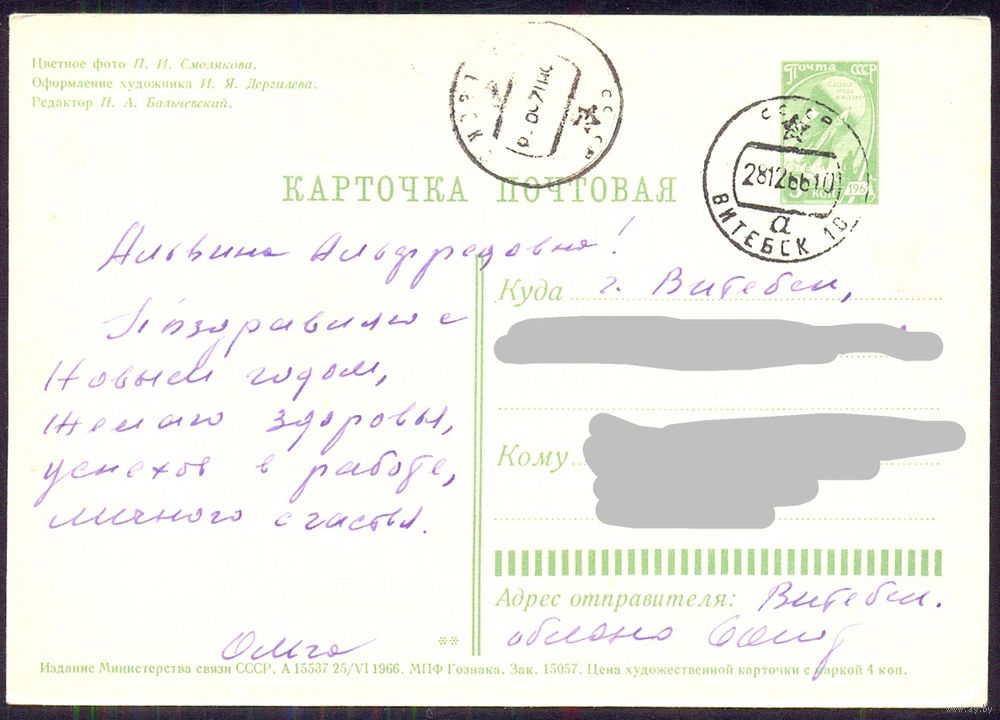 Цветное фото П. И. Смолякова.
Оформление художника И. Я. Дергилева.
Редактор П. А. Бальчевский.
ПОЧТА СССР
СССР
СССР
28126610
а
ВИТЕБСК 10
КАРТОЧКА ПОЧТОВАЯ
Альвина Альфредовна!
Поздравляю с
Новым годом,
Желаю здоровья,
успехов в работе,
личного счастья.
Ольга
Куда г. Витебск,
Кому
Адрес отправителя: Витебск.
**
Издание Министерства связи СССР. А 15537 25/VI 1966. МПФ Гознака. Зак. 15057. Цена художественной карточки с маркой 4 коп.
www.ay.by